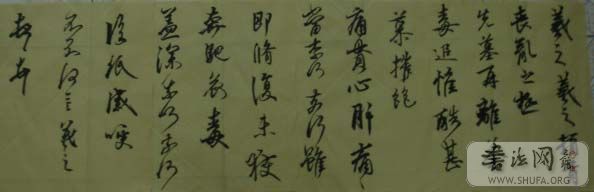 羲之羲之頓
喪亂之極
先墓再離
毒追惟酷甚
慕摧絕
痛貫心肝痛
當奈何奈何雖
即脩復未獲
奔馳哀毒
益深奈何奈何
臨紙感哽
不知何言羲之
頓首
書法网
WWW.SHUFA.ORG